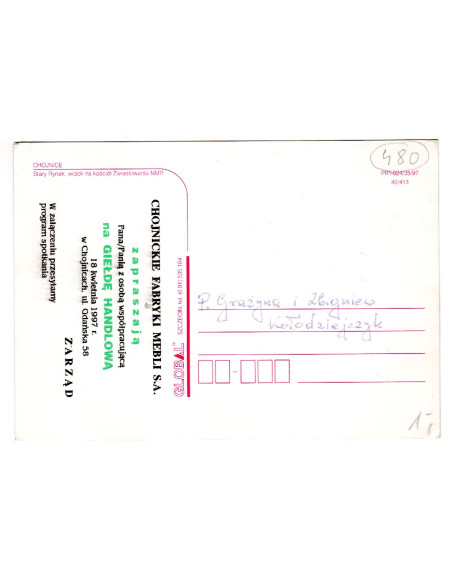 CHOJNICE
Stary Rynek, widok na kościół Zwiastowania NMP
CHOJNICKIE FABRYKI MEBLI S.A.
zapraszają
Pana/Panią z osobą współpracującą
na GIEŁDĘ HANDLOWĄ
18 kwietnia 1997 r.
w Chojnicach, ul. Gdańska 58
ZARZĄD
W załączeniu przesyłamy
program spotkania
GLOBAL
480
42/413
P. Grażyna i Zbigniew
Kołodziejczyk
1,-